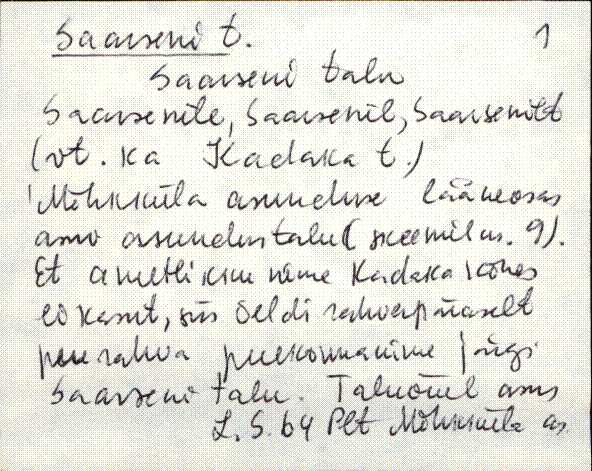 Saarseni t. 1
Saarseni talu
Saarsenile, Saarsenil, Saarsenilt
(vt. ka Kadaka t.)
Mõhküla asunduse lääneosas
asuv asundustalu (skeemil nr. 9).
Et ametlikku nime Kadaka kõnes
ei kasut, siis öeldi rahvapäraselt
pererahva perekonnanime järgi
Saarseni talu. Taluõuel asus
L. S. 64 Plt Mõhküla as